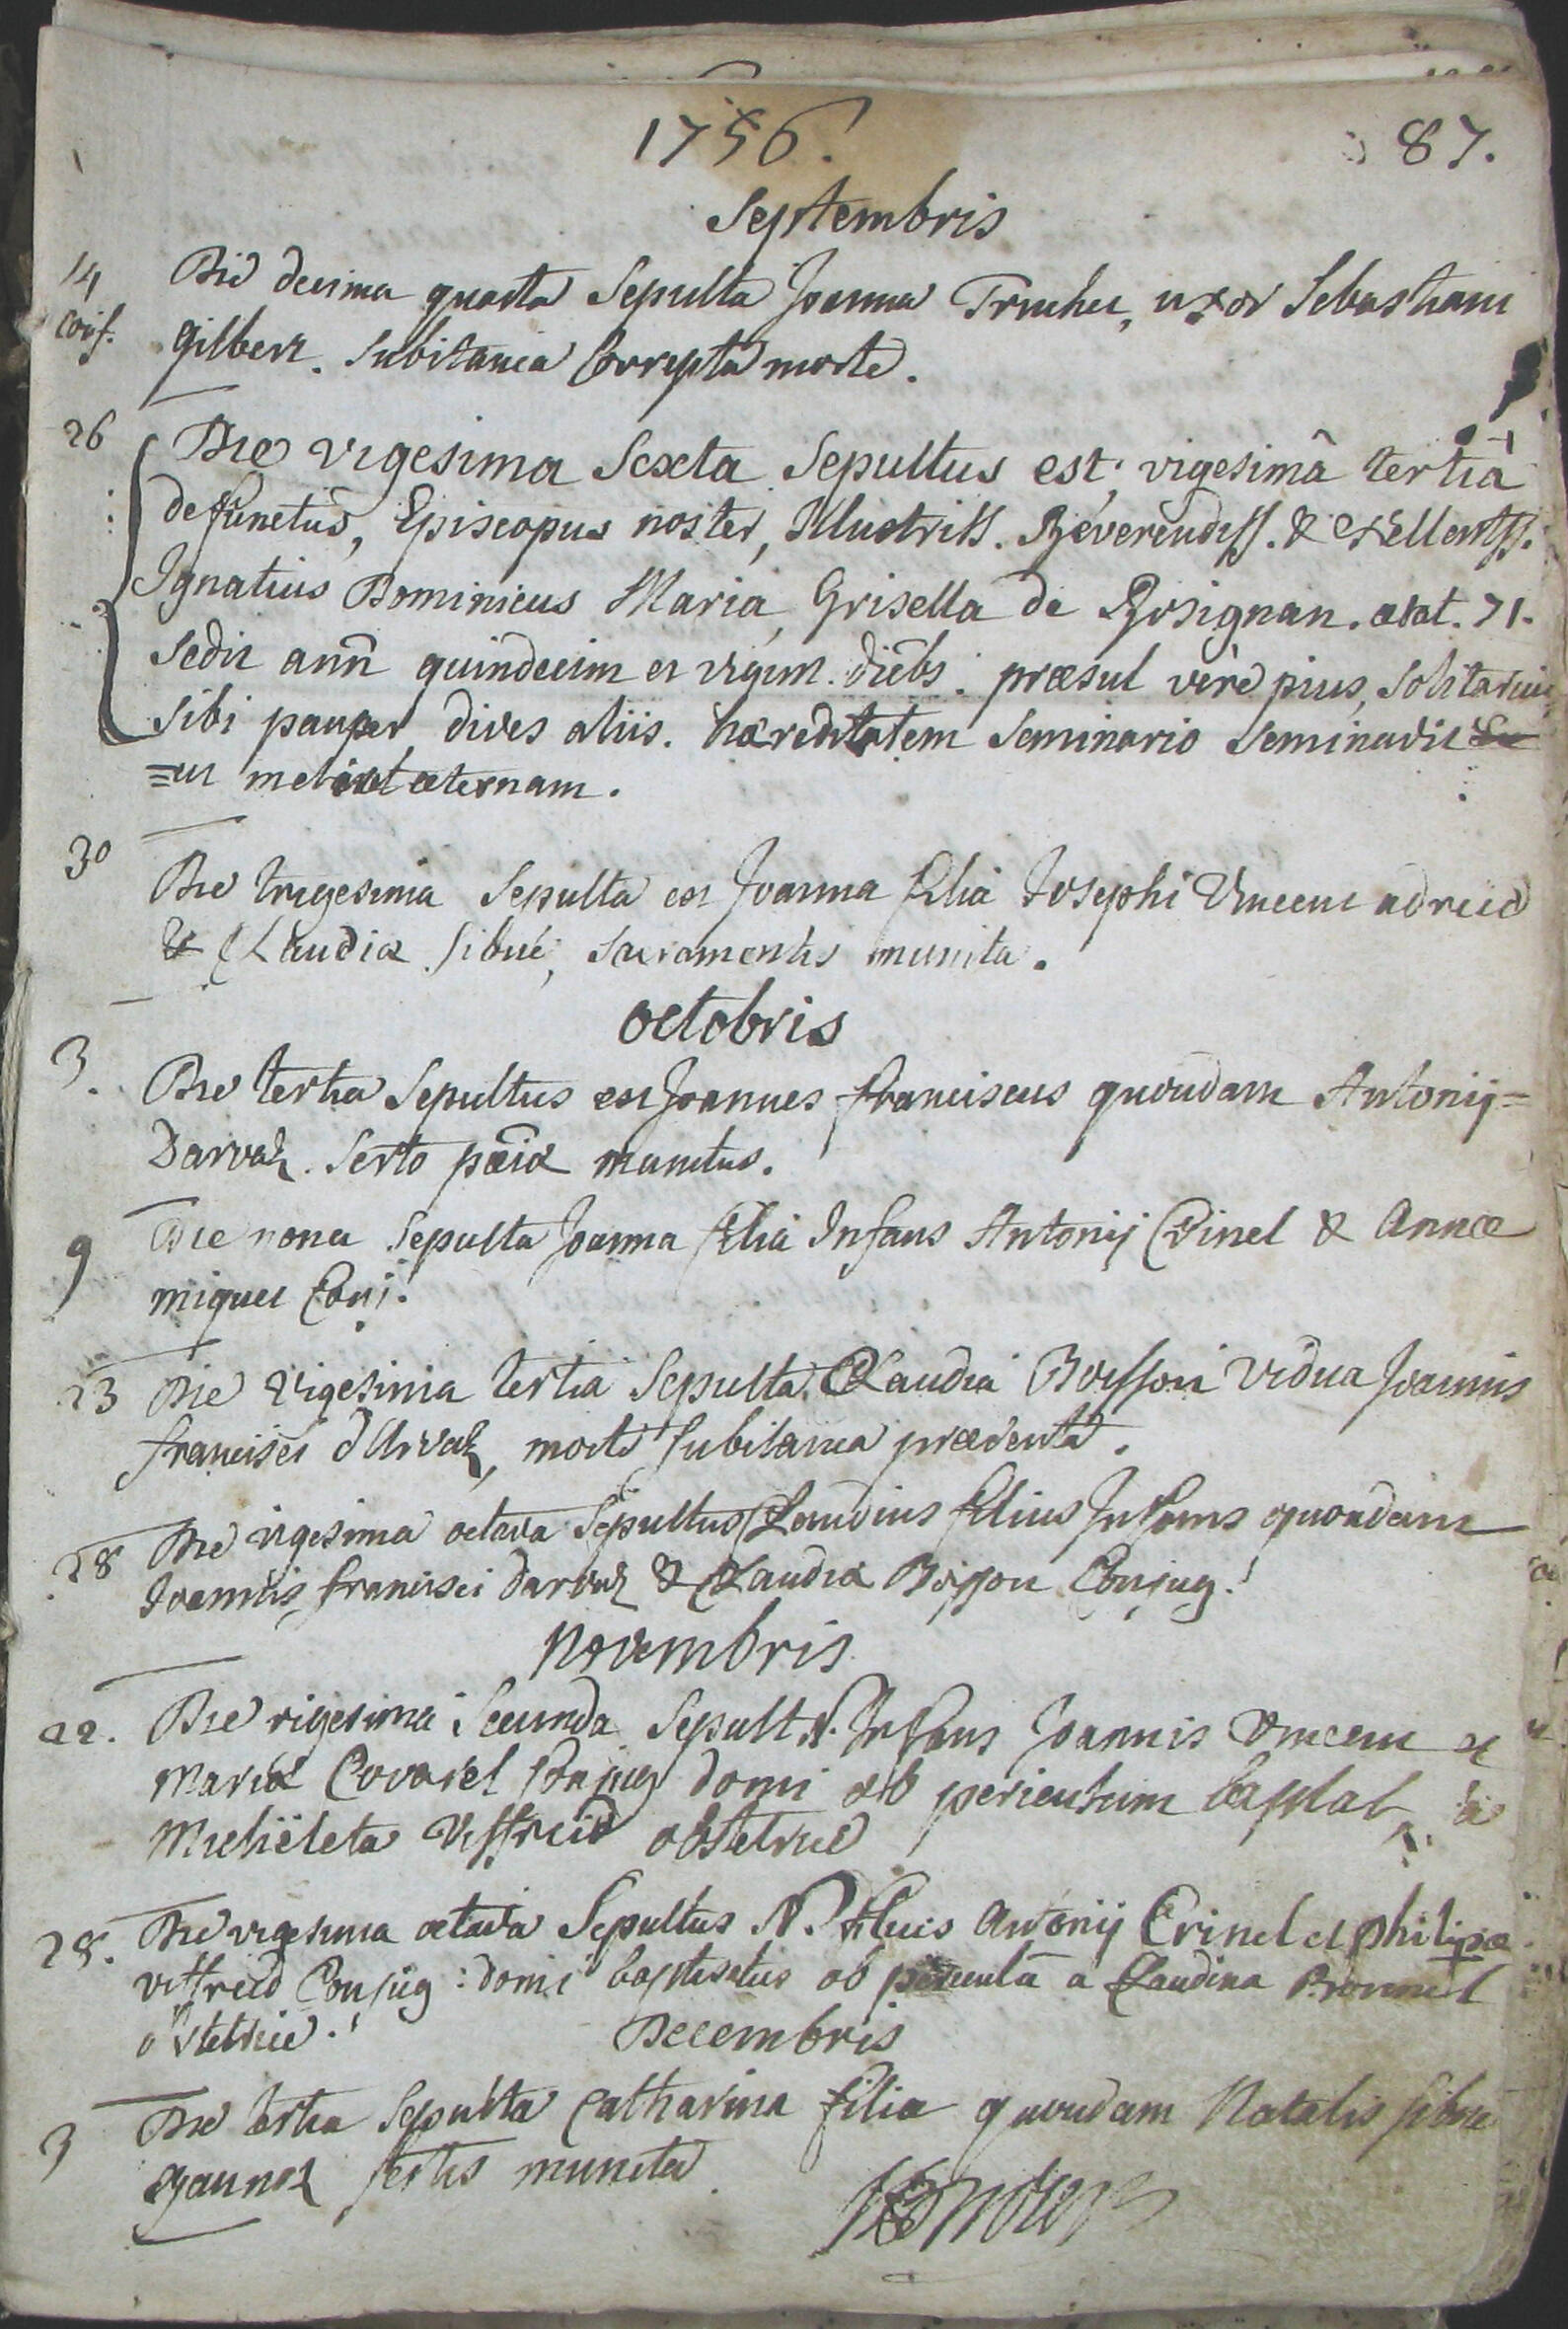 1756.
87.
Septembris
14 Die decima quarta Sepulta Joanna Truchet, uxor Sebastiani
conf. gilbert. Subitanea Correpta morte.
26 Die vigesima Sexta Sepultus est, vigesimâ tertiâ
defunctus, Episcopus noster, Illustriss. Reverendiss. & exellentiss.
Ignatius Dominicus Maria, Grisella de Rosignan. ætat. 71.
Sedit ann quindecim et vigint. diebs. præsul verè pius, solitarius
sibi pauper, dives aliis. hæreditatem seminario seminavit
=ut metat æternam.
30 Die trigesima Sepulta est Joanna filia Josephi Vincent adreit
& Claudiæ Sibué, sacramentis munita.
octobris
3. Die tertia Sepultus est Joannes franciscus quondam Antonij=
Darvaz. Serto pœiæ munitus.
9 Die nona Sepulta Joanna filia Infans Antonij Crinel & Annæ
miquet Conj.
23 Die Vigesima tertia Sepulta Claudia Boisson Vidua Joannis
francisci dArvaz, morte subitanea præventa.
28 Die vigesima octava Sepultus Claudius filius Infans quondam
Joannis francisci darvaz & Claudiæ Boisson Conjug.
Novembris
22. Die vigesima Secunda Sepult. N. Infans Joannis Vincent et
Mariæ Covarel Conjug domi ob periculum baptat, à
Michièleta Viffreid obstetrice
28. Die vigesima octava Sepultus N. filius Antonij Crinel et philipæ
viffreid Conjug: domi baptisatus ob periculũ a Claudina Brunnet
obstetrice.
Decembris
3 Die tertia Sepulta Catharina filia quondam Natalis sibué
Gaunoz sertis munita